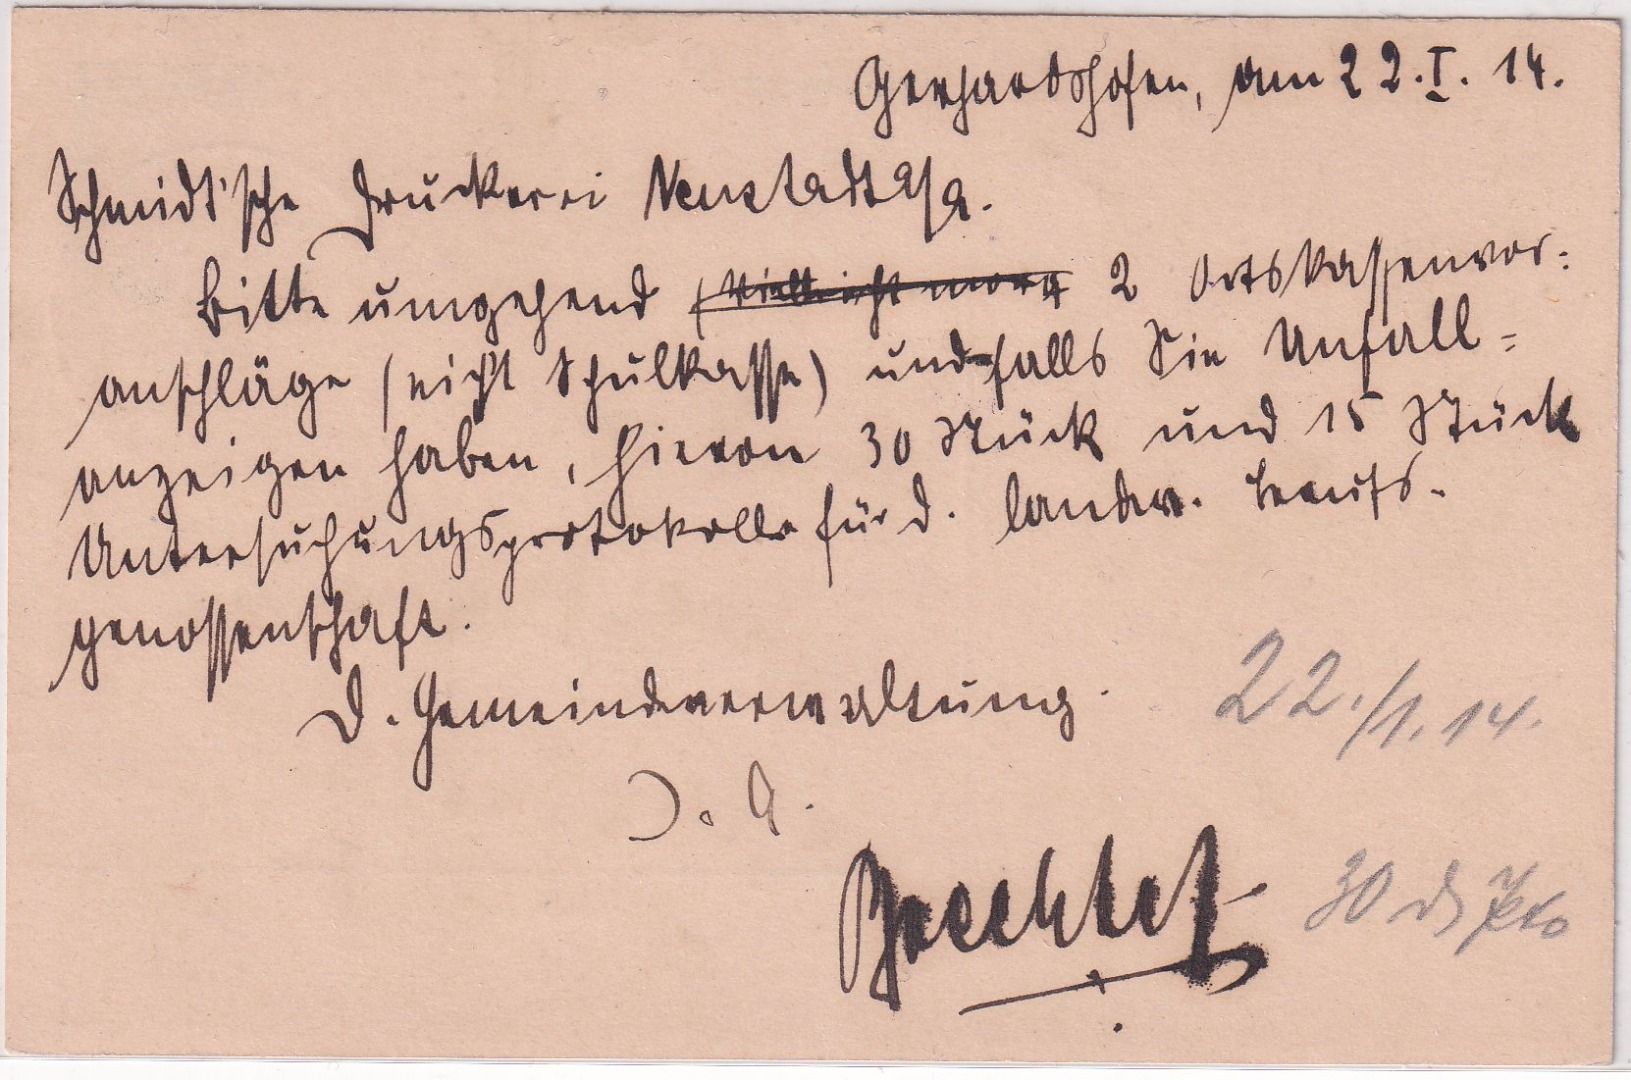 Gerhardshofen, am 22.I. 14.
Schmidt'sche Druckerei Neustadt a/a.
Bitte umgehend (vielleicht morg 2 Ortskassenvor=
anschläge (nicht Schulkasse) und falls Sie Unfall=
anzeigen haben, hievon 30 Stück und 15 Stück
Untersuchungsprotokolle für d. landw. Berufs-
genossenschaft.
D. Gemeindeverwaltung.
22./1. 14.
J. A.
30 d